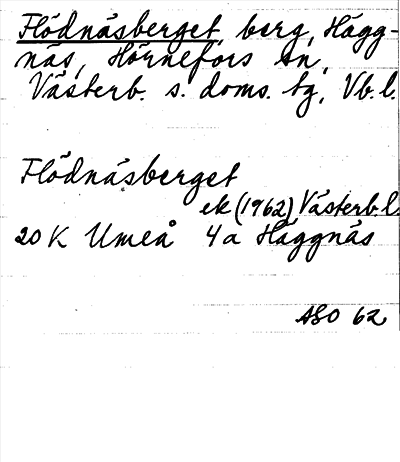 Flödnäsberget, berg, Hägg-
näs, Hörnefors sn,
Västerb. s. doms. tg, Vb. l.
Flödnäsberget
ek (1962) Västerb. l.
20 K Umeå 4a Häggnäs
ASO 62